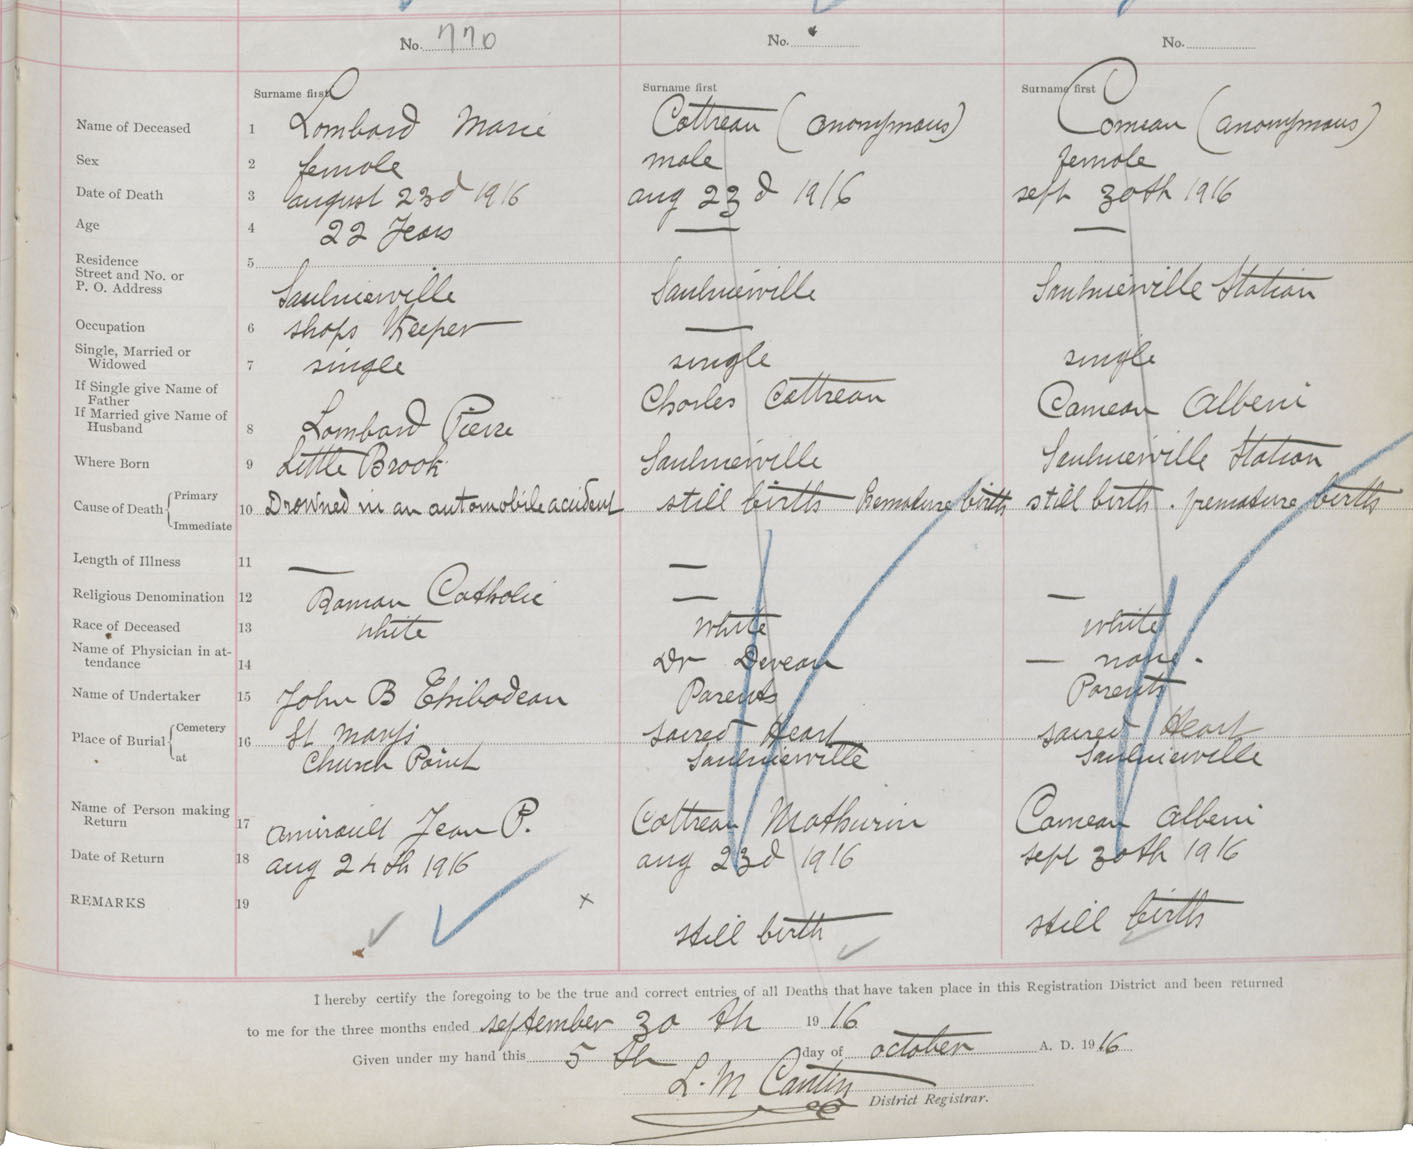 No. 770 No. No.
Surname first Surname first Surname first
Name of Deceased 1 Lombard Marie Cottreau (anonymous) Comeau (anonymous)
Sex 2 female male female
Date of Death 3 august 23d 1916 aug 23d 1916 sept 30th 1916
Age 4 22 Years — —
Residence 5
Street and No. or
P. O. Address Saulnierville Saulnierville Saulnierville Station
Occupation 6 shops Keeper —
Single, Married or
Widowed 7 single single single
If Single give Name of
Father Charles Cottreau Comeau Alberic
If Married give Name of
Husband 8 Lombard Pierre
Where Born 9 Little Brook Saulnierville Saulnierville Station
Cause of Death Primary
Immediate 10 Drowned in an automobile accident still birth Premature birth still birth . premature birth
Length of Illness 11 — —
Religious Denomination 12 Roman Catholic — —
Race of Deceased 13 white white white
Name of Physician in at-
tendance 14 Dr Deveau — none.
Name of Undertaker 15 John B Thibodeau Parents Parents
Place of Burial Cemetery 16 St Mary's sacred Heart sacred Heart
at Church Point Saulnierville Saulnierville
Name of Person making
Return 17 amirault Jean P. Cottreau Mathurin Comeau Alberic
Date of Return 18 aug 24th 1916 aug 23d 1916 sept 30th 1916
REMARKS 19 x still birth still birth
I hereby certify the foregoing to be the true and correct entries of all Deaths that have taken place in this Registration District and been returned
to me for the three months ended september 30 th 19 16
Given under my hand this 5 th day of october A. D. 19 16
L. M Cantin
District Registrar.